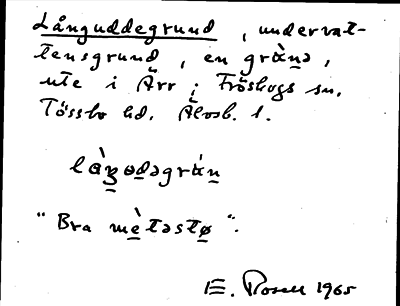 Långuddegrund, undervat-
tensgrund, en grànə,
ute i Ärr; Fröskogs sn.
Tössbo hd. Älvsb. l.
làŋɵdəgràn
"Bra mètəstø".
E. Rosell 1965